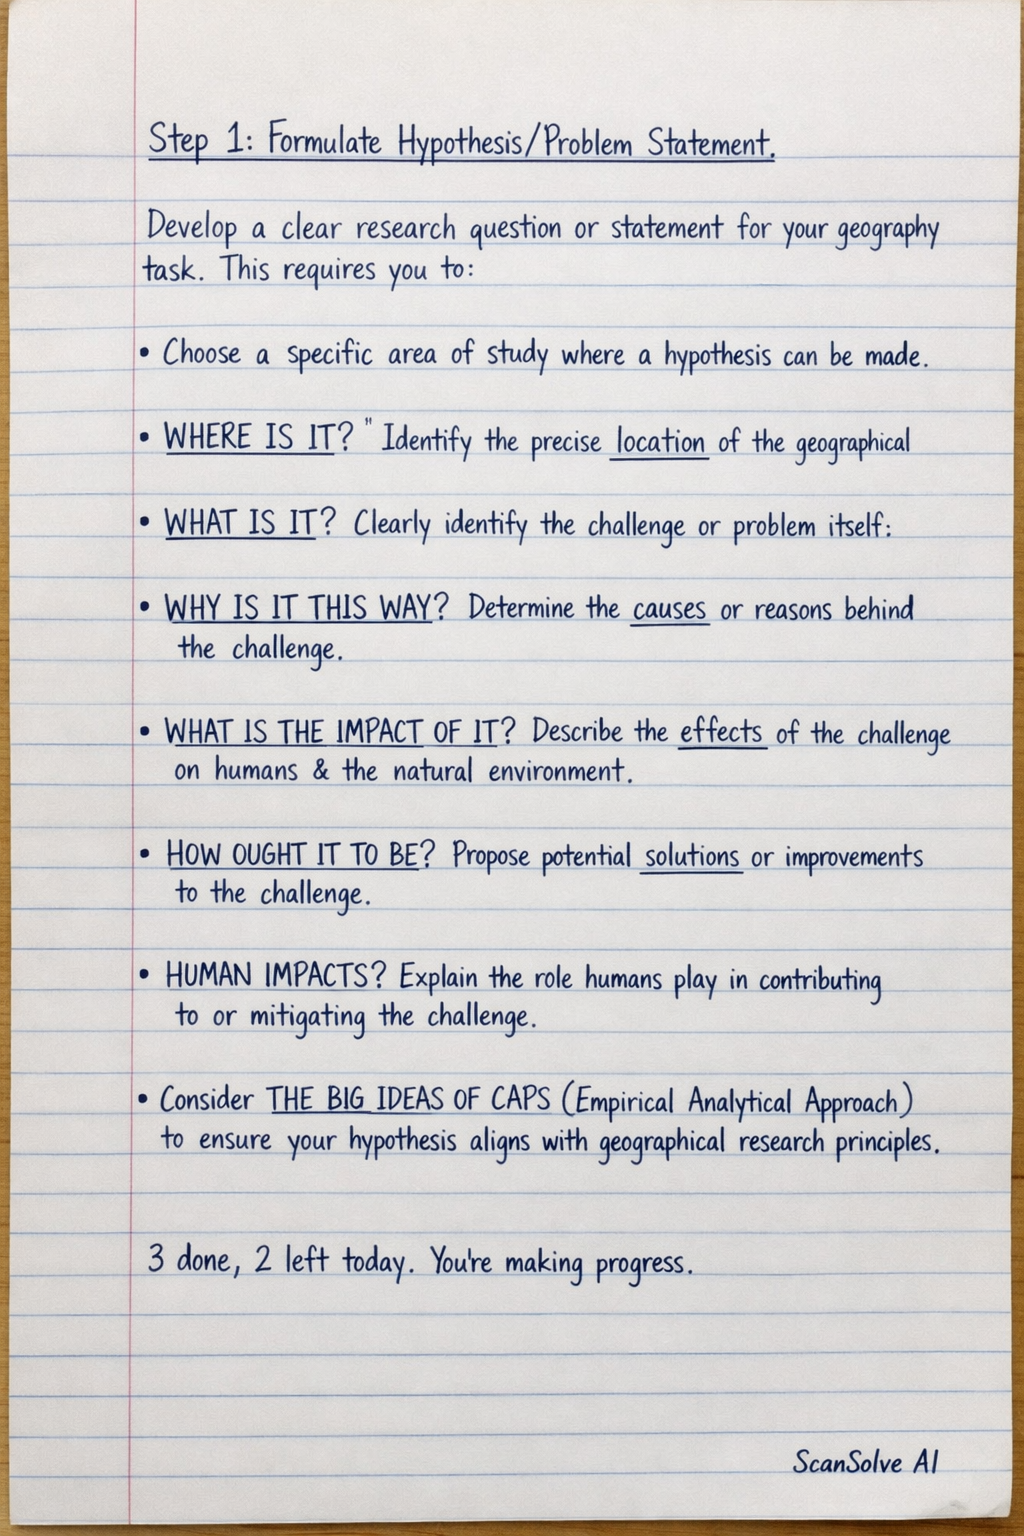 Step 1: Formulate Hypothesis/Problem Statement.
Develop a clear research question or statement for your geography
task. This requires you to:
• Choose a specific area of study where a hypothesis can be made.
• WHERE IS IT? " Identify the precise location of the geographical
• WHAT IS IT? Clearly identify the challenge or problem itself:
• WHY IS IT THIS WAY? Determine the causes or reasons behind
the challenge.
• WHAT IS THE IMPACT OF IT? Describe the effects of the challenge
on humans & the natural environment.
• HOW OUGHT IT TO BE? Propose potential solutions or improvements
to the challenge.
• HUMAN IMPACTS? Explain the role humans play in contributing
to or mitigating the challenge.
• Consider THE BIG IDEAS OF CAPS (Empirical Analytical Approach)
to ensure your hypothesis aligns with geographical research principles.
3 done, 2 left today. You're making progress.
ScanSolve AI